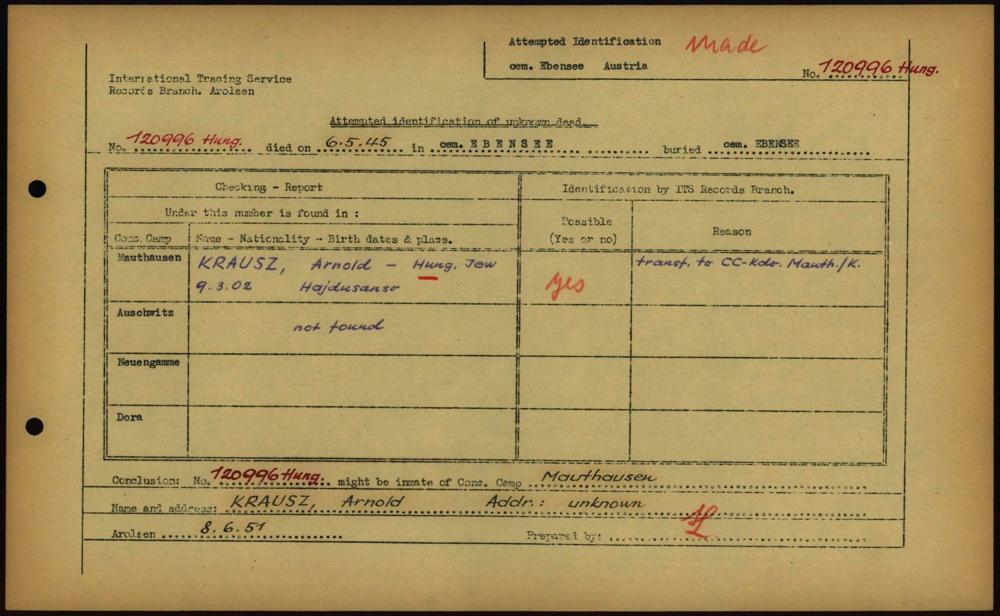 Attempted Identification Made
cem. Ebensee Austria
No. 120996 Hung.
International Tracing Service
Records Branch. Arolsen
Attempted identification of unknown dead
No. 120996 Hung. died on 6.5.45 in cem. EBENSEE buried cem. EBENSEE
Checking - Report
Identification by ITS Records Branch.
Under this number is found in :
Possible
(Yes or no)
Reason
Conc. Camp
Name - Nationality - Birth dates & place.
Mauthausen
KRAUSZ, Arnold - Hung. Jew
9.3.02 Hajdusanso
yes
transf. to CC-Kdo. Mauth./K.
Auschwitz
not found
Neuengamme
Dora
Conclusion: No. 120996 Hung. might be inmate of Conc. Camp Mauthausen
Name and address: KRAUSZ, Arnold Addr.: unknown
Arolsen 8.6.51 Prepared by: